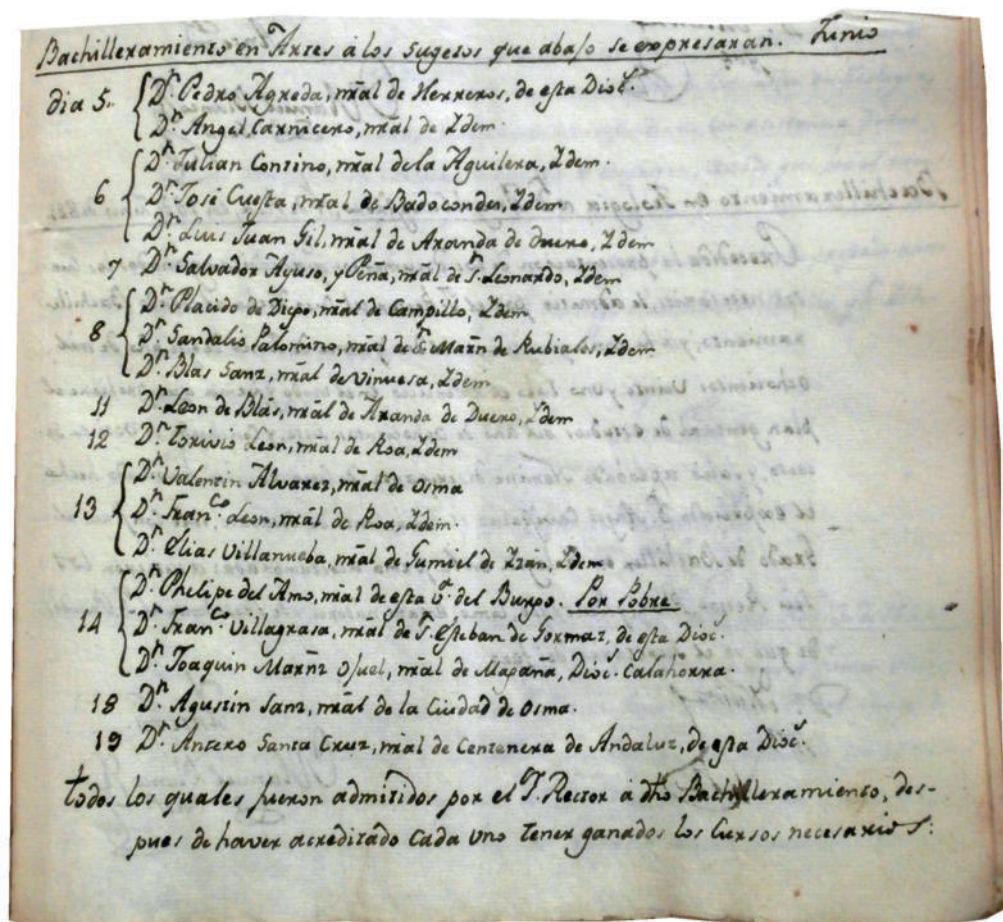 Bachilleramiento en Artes á los sugetos que abajo se expresaran. Junio
dia 5. Dn. Pedro Agreda, nrāl de Herreros, de esta Dioc.
Dn. Angel Carñicero, nrāl de Idem.
Dn. Julian Contino, nrāl de la Aguilera, Idem.
6 Dn. José Cuesta, nrāl de Badocondes, Idem
Dn. Luis Juan Gil, nrāl de Aranda de Duero, Idem
7 Dn. Salvador Ayuso, y Peña, nrāl de Sn. Leonardo, Idem
Dn. Placido de Diego, nrāl de Campillo, Idem
8 Dn. Sandalio Palomino, nrāl de Sn. Marñ de Rubiales, Idem
Dn. Blas Sanz, nrāl de Vinuesa, Idem
11 Dn. Leon de Blás, nrāl de Aranda de Duero, Idem
12 Dn. Torivio Leon, nrāl de Roa, Idem
Dn. Valentin Alvarez, nrāl de Osma
13 Dn. Franco. Leon, nrāl de Roa, Idem.
Dn. Elias Villanueba, nrāl de Gumiel de Izán, Idem
Dn. Phelipe del Amo, nrāl de esta va. del Burgo. Por Pobre
14 Dn. Franco. Villagrasa, nrāl de Sn. Esteban de Gormaz, de esta Dioc.
Dn. Joaquin Marñz Ojuel, nrāl de Magaña, Dioc. Calahorra.
18 Dn. Agustin Sanz, nrāl de la Ciudad de Osma.
19 Dn. Antero Santa Cruz, nrāl de Centenera de Andaluz, de esta Dioc.
todos los quales fueron admitidos por el S. Rector á dho Bachilleramiento, des-
pues de haver acreditado cada uno tener ganados los Cursos necesarios: